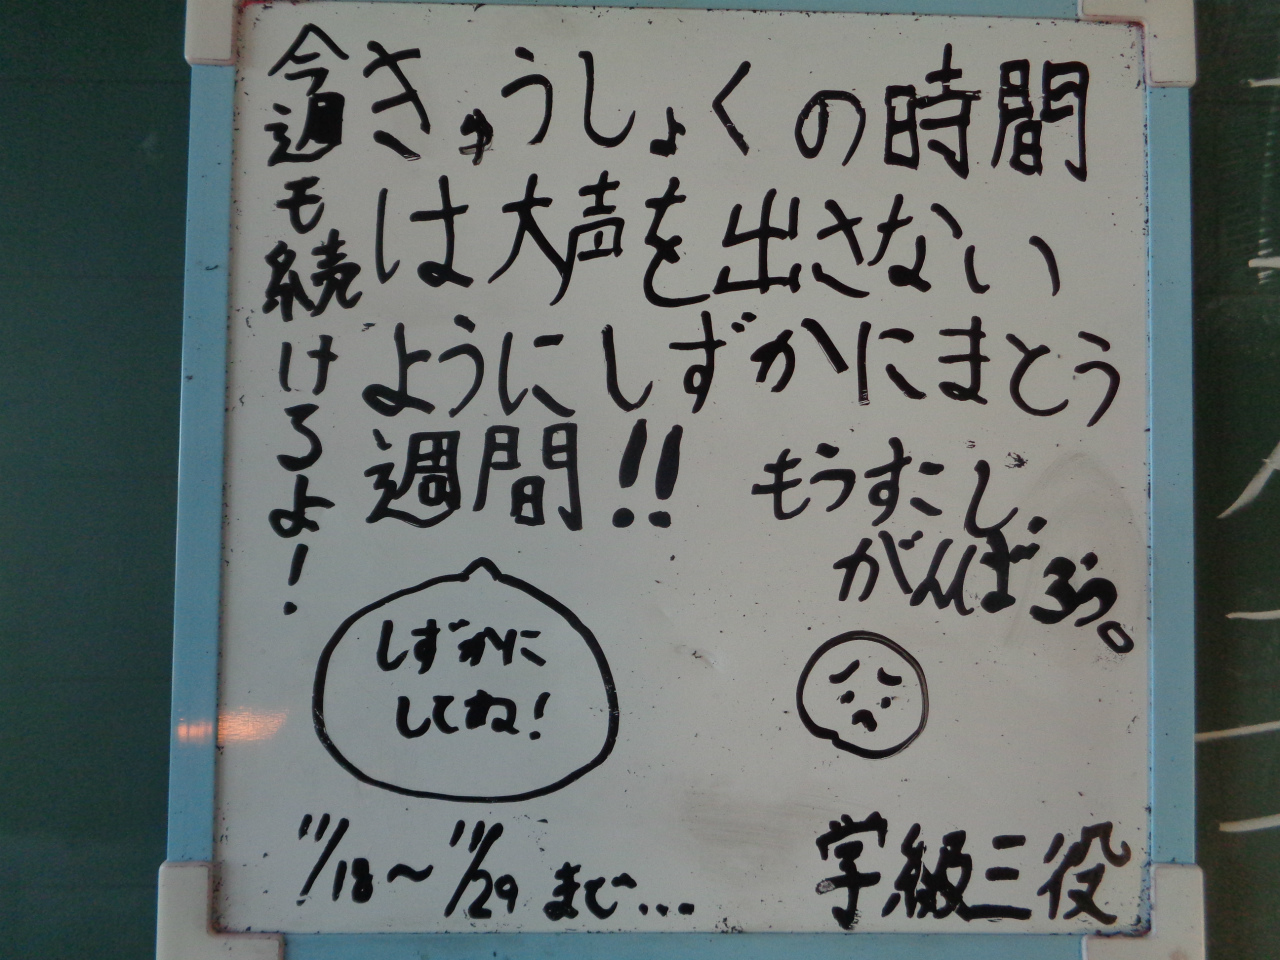 今週も続けろよ！
きゅうしょくの時間
は大声を出さない
ようにしずかにまとう
週間！！
もうすこし
がんばろう。
しずかに
してね！
11/18～11/29まで...
学級三役